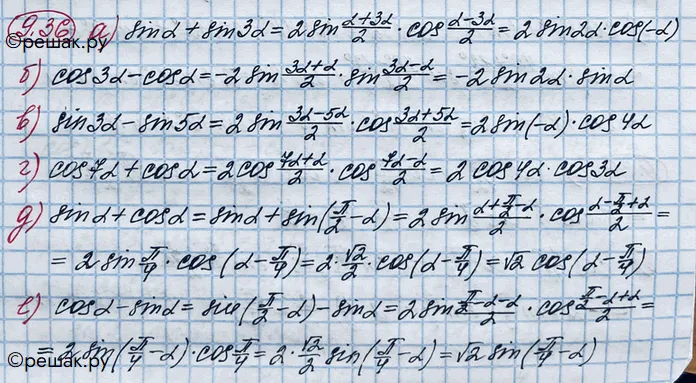 9.36 а) sinα + sin3α = 2 sin (α+3α)/2 · cos (α-3α)/2 = 2 sin2α·cos(-α)
©решак.ру
б) cos3α - cosα = -2 sin (3α+α)/2 · sin (3α-α)/2 = -2 sin2α · sinα
в) sin3α - sin5α = 2 sin (3α-5α)/2 · cos (3α+5α)/2 = 2 sin(-α) · cos4α
г) cos7α + cosα = 2 cos (7α+α)/2 · cos (7α-α)/2 = 2 cos4α · cos3α
д) sinα + cosα = sinα + sin(π/2 - α) = 2 sin (α+π/2-α)/2 · cos (α-π/2+α)/2 =
= 2 sin π/4 · cos(α - π/4) = 2 · √2/2 · cos(α - π/4) = √2 cos(α - π/4)
е) cosα - sinα = sin(π/2 - α) - sinα = 2 sin (π/2-α-α)/2 · cos (π/2-α+α)/2 =
= 2 sin(π/4 - α) · cos π/4 = 2 · √2/2 sin(π/4 - α) = √2 sin(π/4 - α)
©решак.ру